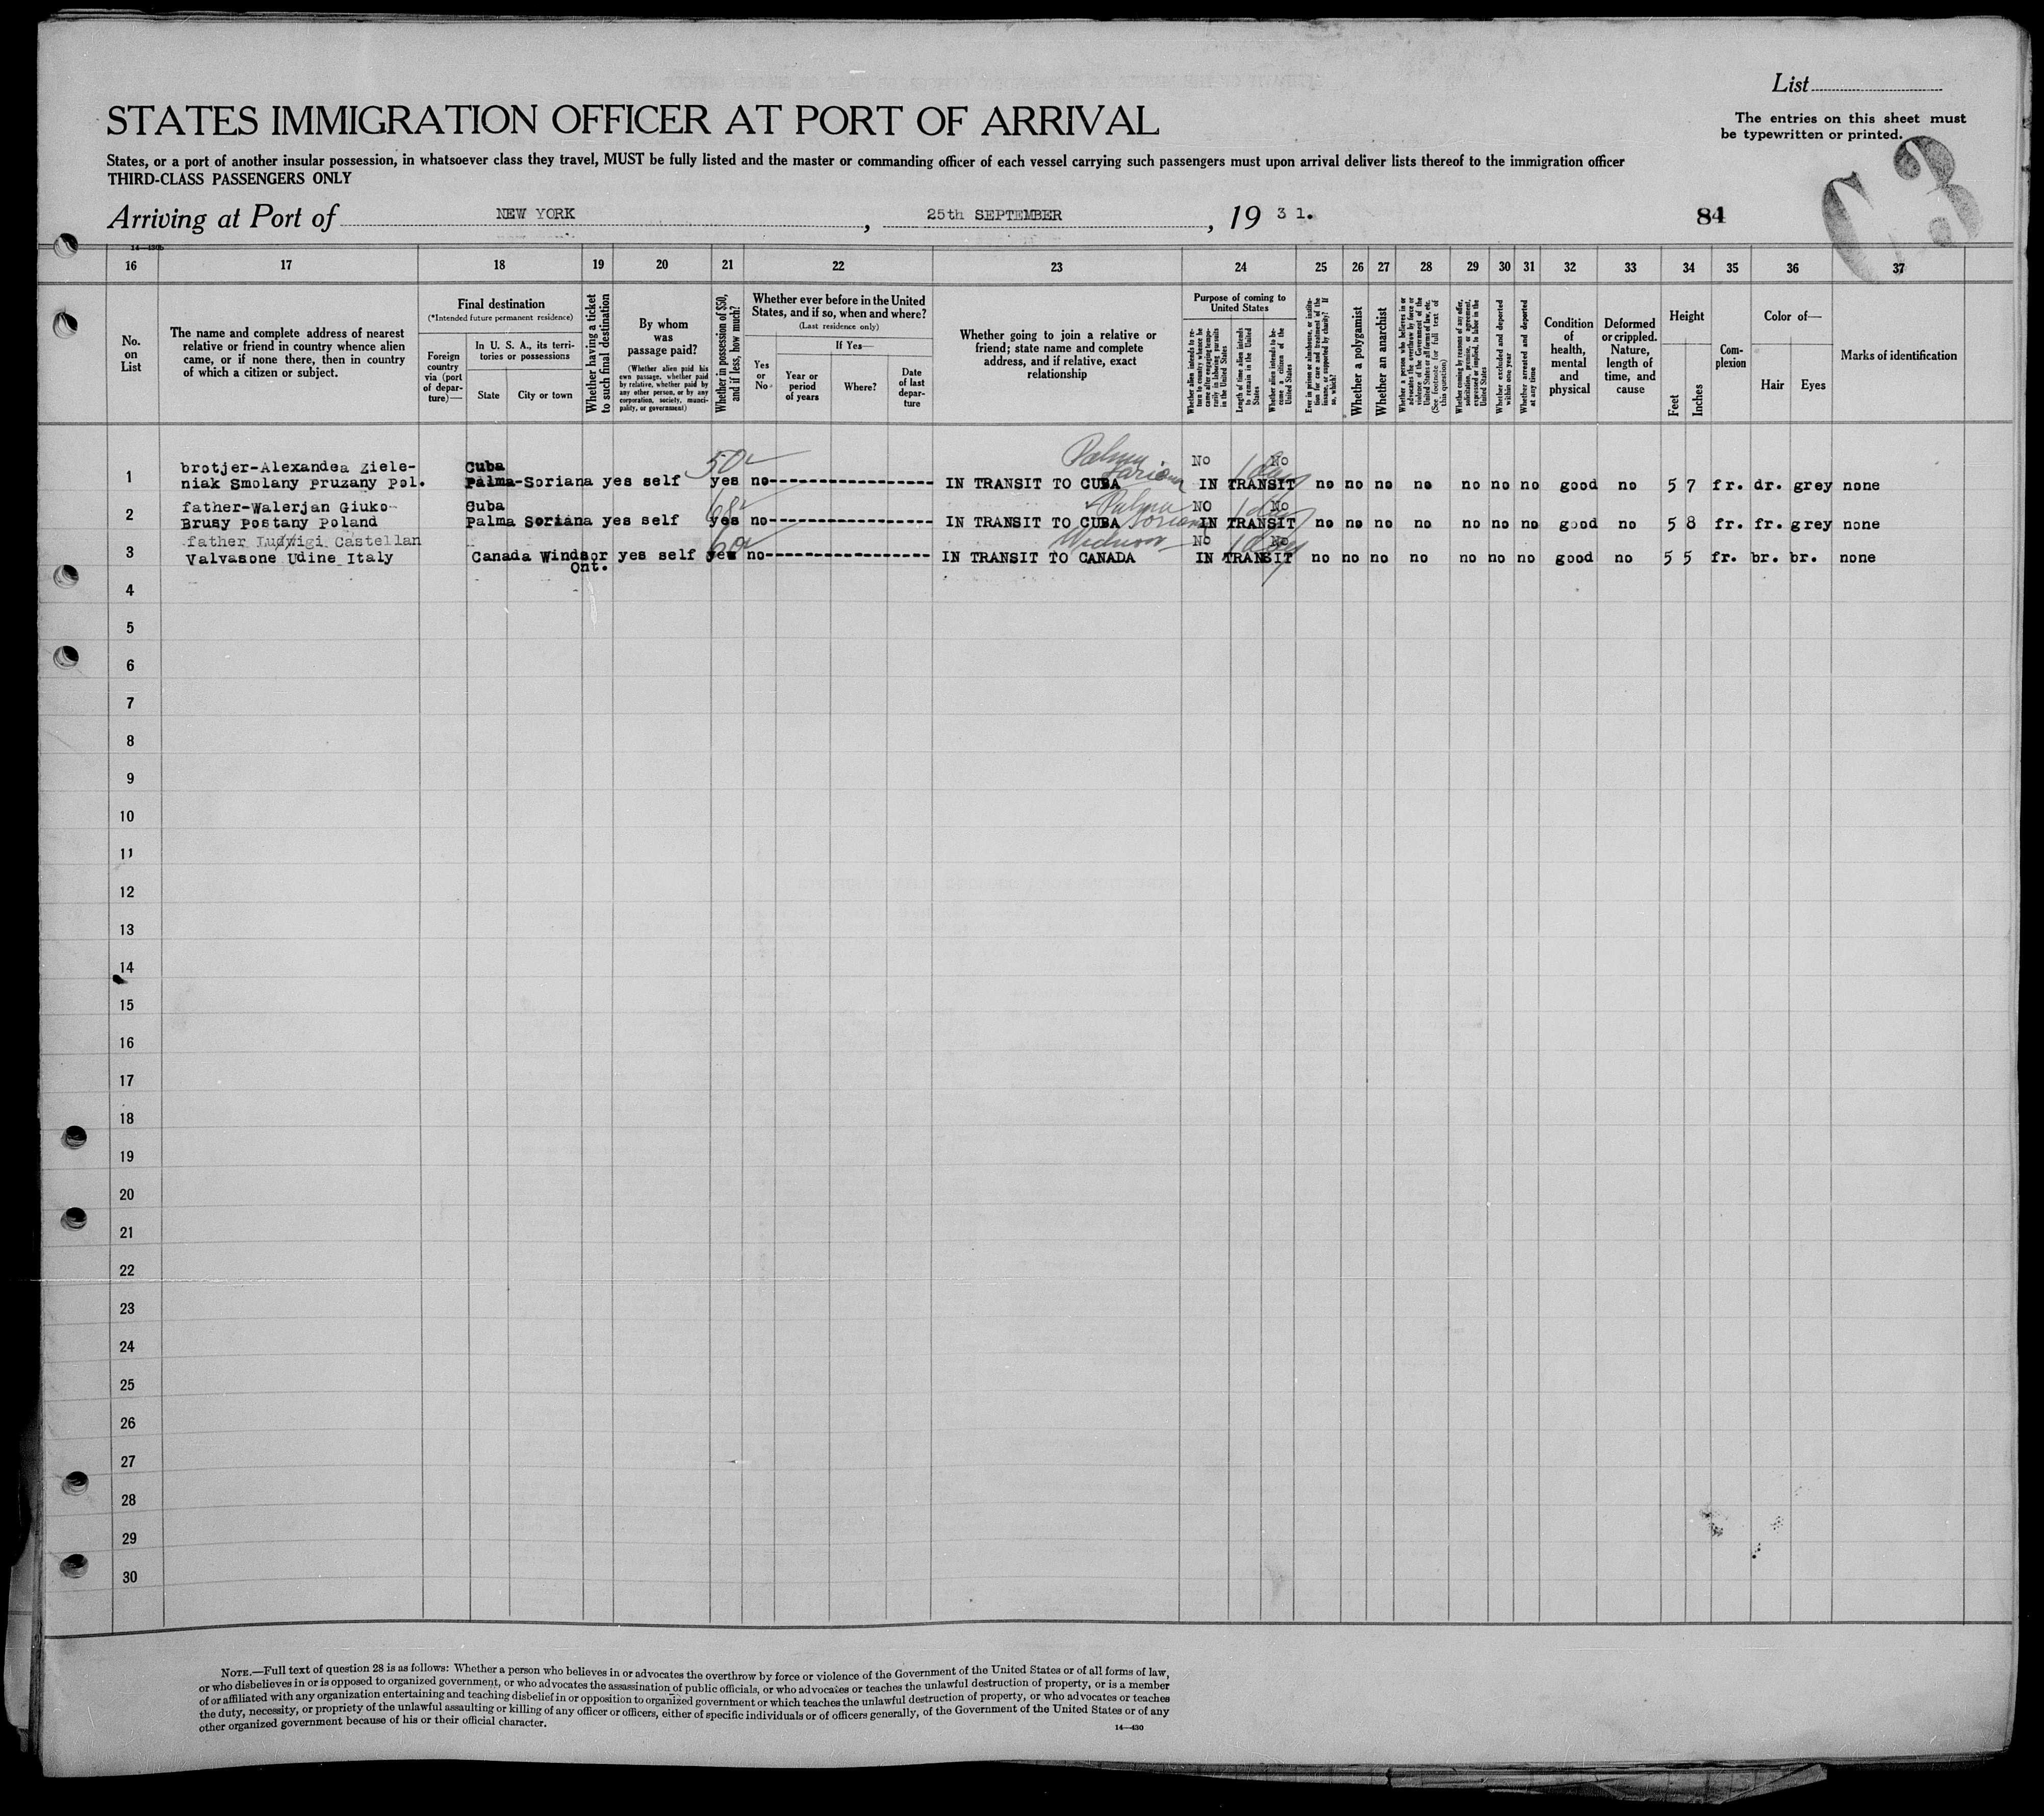 List
STATES IMMIGRATION OFFICER AT PORT OF ARRIVAL
The entries on this sheet must
be typewritten or printed.
States, or a port of another insular possession, in whatsoever class they travel, MUST be fully listed and the master or commanding officer of each vessel carrying such passengers must upon arrival deliver lists thereof to the immigration officer
THIRD-CLASS PASSENGERS ONLY
C3
Arriving at Port of NEW YORK, 25th SEPTEMBER, 19 31. 84
14—430b
16 17 18 19 20 21 22 23 24 25 26 27 28 29 30 31 32 33 34 35 36 37
No.
on
List
The name and complete address of nearest
relative or friend in country whence alien
came, or if none there, then in country
of which a citizen or subject.
Final destination
(*Intended future permanent residence)
Foreign
country
via (port
of depar-
ture)—
In U. S. A., its terri-
tories or possessions
State
City or town
Whether having a ticket
to such final destination
By whom
was
passage paid?
(Whether alien paid his
own passage, whether paid
by relative, whether paid by
any other person, or by any
corporation, society, munici-
pality, or government)
Whether in possession of $50,
and if less, how much?
Whether ever before in the United
States, and if so, when and where?
(Last residence only)
Yes
or
No
If Yes—
Year or
period
of years
Where?
Date
of last
depar-
ture
Whether going to join a relative or
friend; state name and complete
address, and if relative, exact
relationship
Purpose of coming to
United States
Whether alien intends to re-
turn to country whence he
came after engaging tempo-
rarily in laboring pursuits
in the United States
Length of time alien intends
to remain in the United
States
Whether alien intends to be-
come a citizen of the
United States
Ever in prison or almshouse, or institu-
tion for care and treatment of the
insane, or supported by charity? If
so, which?
Whether a polygamist
Whether an anarchist
Whether a person who believes in or
advocates the overthrow by force or
violence of the Government of the
United States or all forms of law, etc.
(See footnote for full text of
this question)
Whether coming by reason of any offer,
solicitation, promise, or agreement,
expressed or implied, to labor in the
United States
Whether excluded and deported
within one year
Whether arrested and deported
at any time
Condition
of
health,
mental
and
physical
Deformed
or crippled.
Nature,
length of
time, and
cause
Height
Feet
Inches
Com-
plexion
Color of—
Hair
Eyes
Marks of identification
brotjer-Alexandea Ziele- Cuba 50 Palma Soriana No No
1 niak Smolany Pruzany Pol. Palma-Soriana yes self yes no IN TRANSIT TO CUBA IN TRANSIT 1 day no no no no no no no good no 5 7 fr. dr. grey none
father-Walerjan Giuko- Cuba 68 Palma Soriana NO No
2 Brusy Postany Poland Palma Soriana yes self yes no IN TRANSIT TO CUBA IN TRANSIT 1 day no no no no no no no good no 5 8 fr. fr. grey none
father Ludwigi Castellan 60 Windsor No No
3 Valvasone Udine Italy Canada Windsor yes self yes no IN TRANSIT TO CANADA IN TRANSIT 1 day no no no no no no no good no 5 5 fr. br. br. none
Ont.
4
5
6
7
8
9
10
11
12
13
14
15
16
17
18
19
20
21
22
23
24
25
26
27
28
29
30
NOTE.—Full text of question 28 is as follows: Whether a person who believes in or advocates the overthrow by force or violence of the Government of the United States or of all forms of law,
or who disbelieves in or is opposed to organized government, or who advocates the assassination of public officials, or who advocates or teaches the unlawful destruction of property, or is a member
of or affiliated with any organization entertaining and teaching disbelief in or opposition to organized government or which teaches the unlawful destruction of property, or who advocates or teaches
the duty, necessity, or propriety of the unlawful assaulting or killing of any officer or officers, either of specific individuals or of officers generally, of the Government of the United States or of any
other organized government because of his or their official character.
14—430